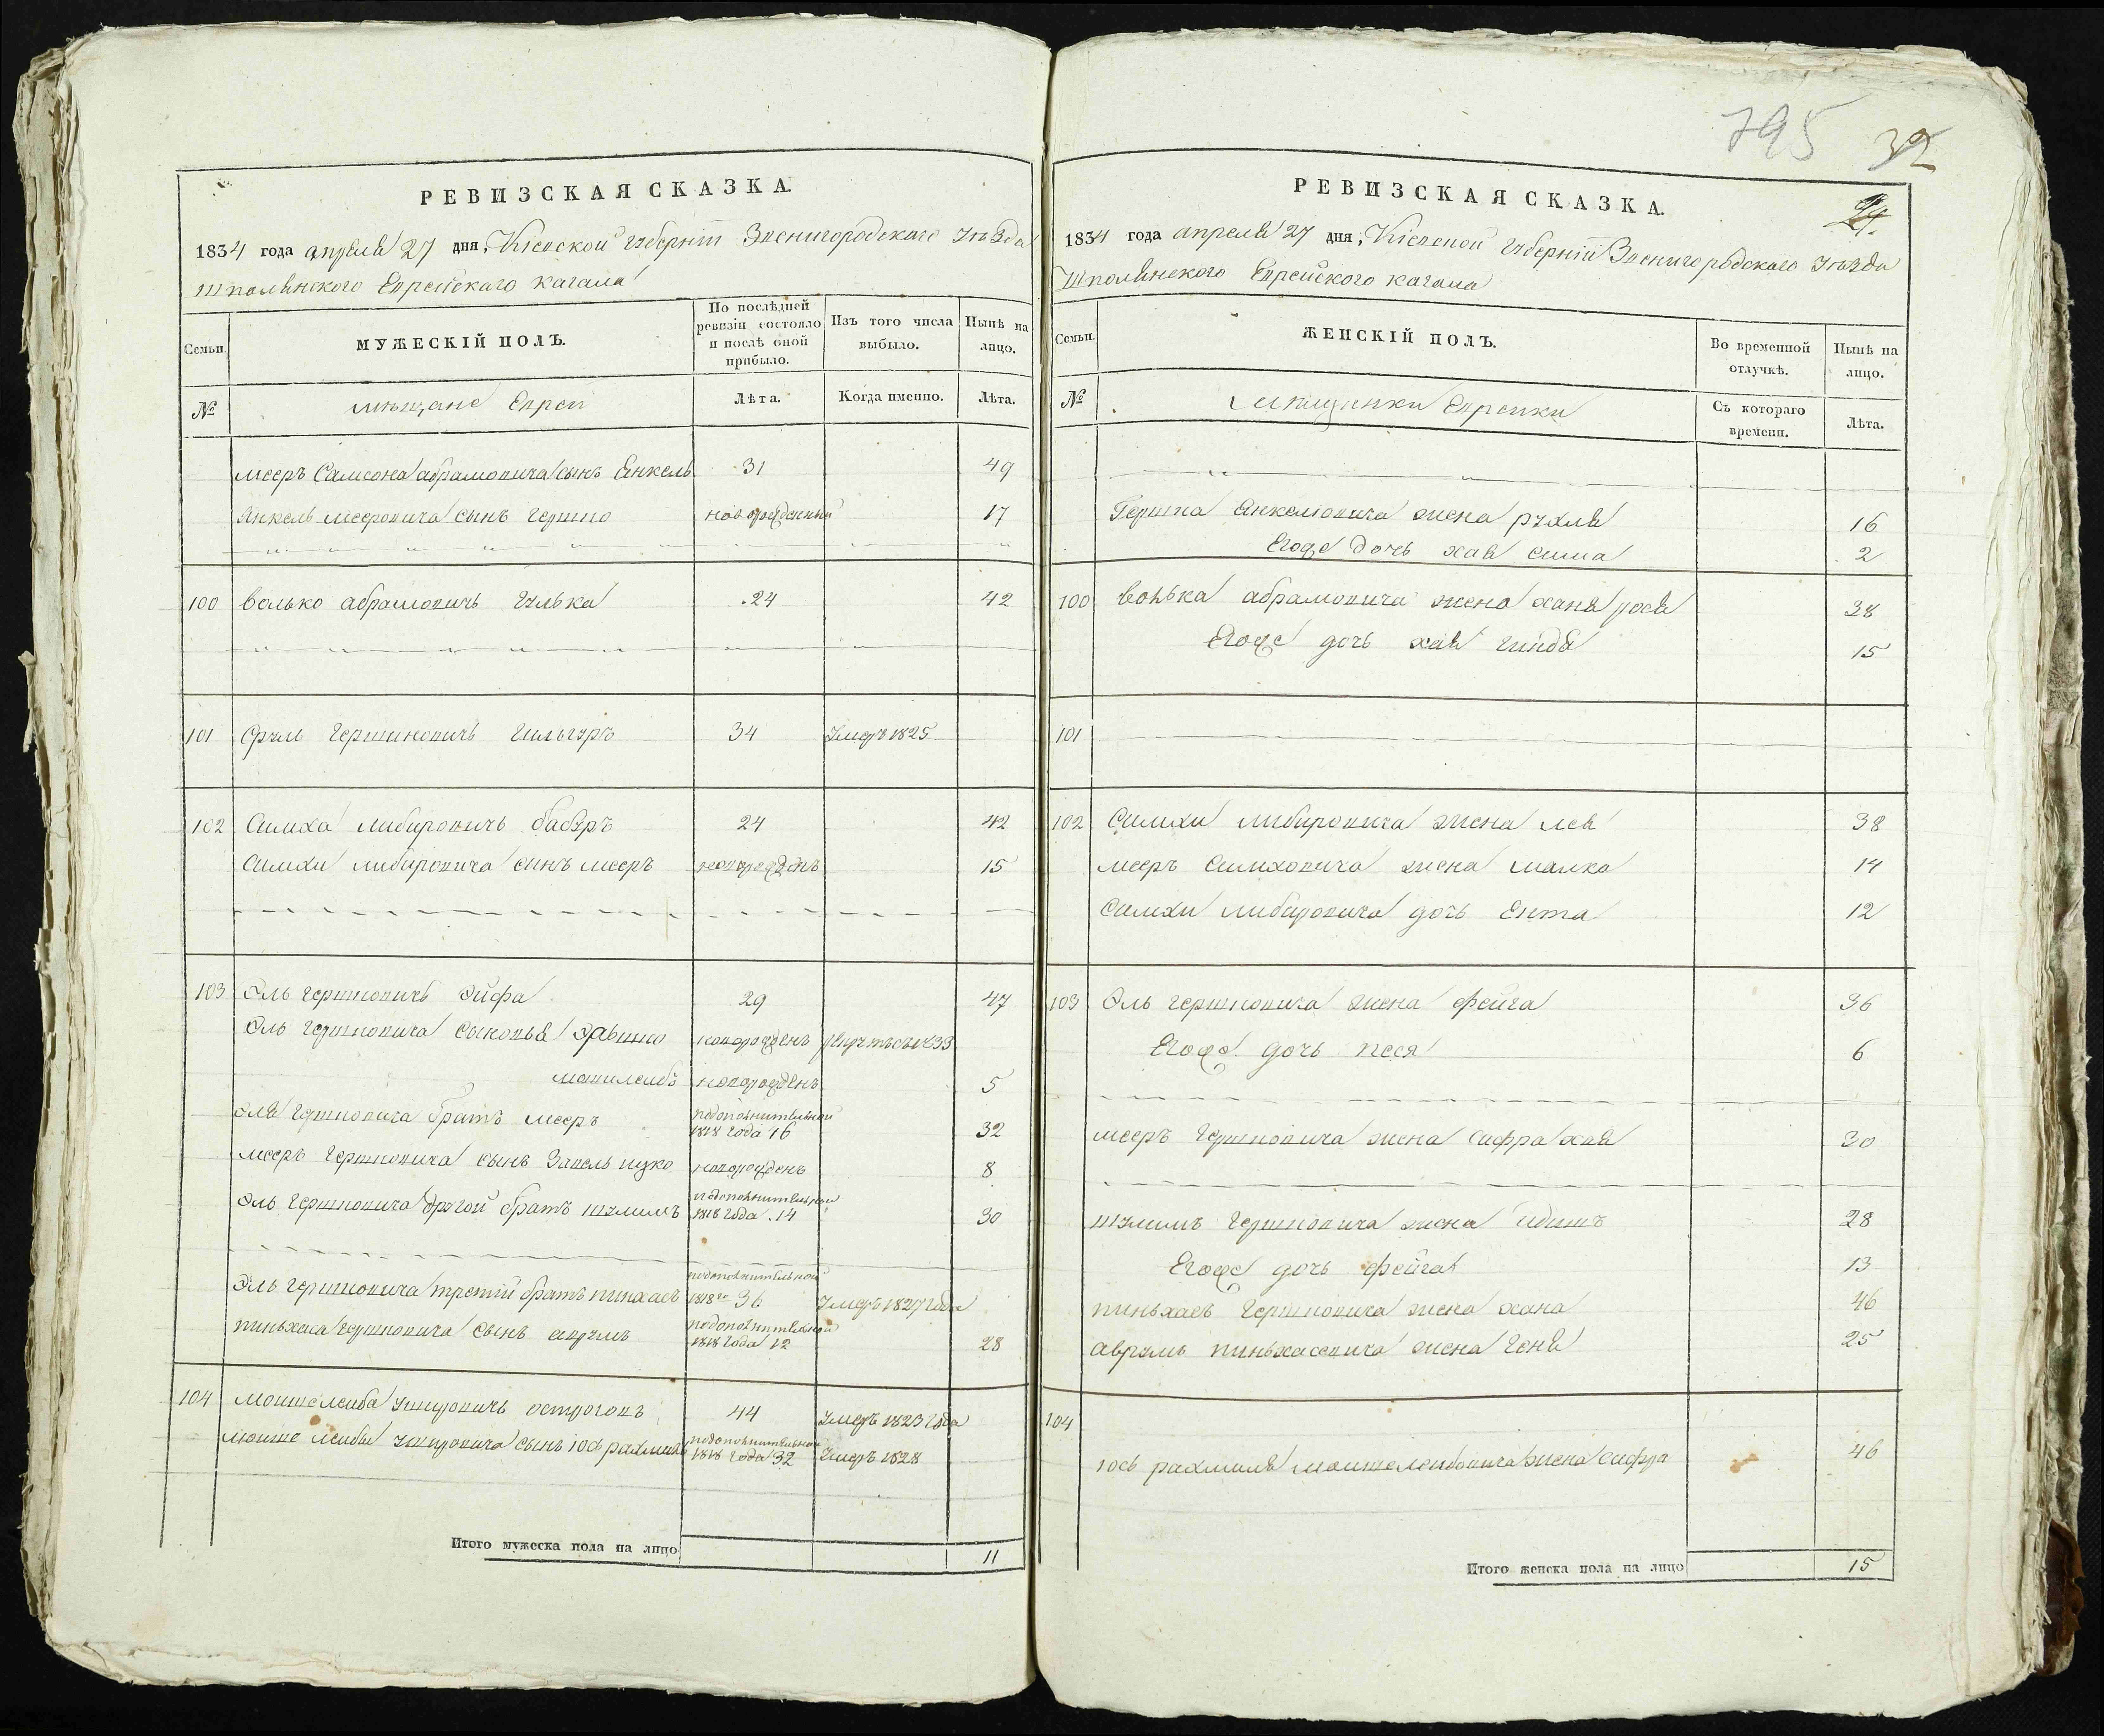 РЕВИЗСКАЯ СКАЗКА.
1834 года апреля 27 дня, Кіевской губерніи Звенигородскаго уѣзда
шполянского Еврейскаго кагала
Семьи.
МУЖЕСКІЙ ПОЛЪ.
По послѣдней ревизіи состояло и послѣ оной прибыло.
Изъ того числа выбыло.
Нынѣ на лицо.
№
мѣщане Евреи
Лѣта.
Когда именно.
Лѣта.
мееръ Самсона абрамовича сынъ Янкель 31 49
Янкель мееровича сынъ гершко новорожденный 17
100 волько абрамовичъ гулька 24 42
101 Сруль гершковичъ 34 умеръ 1825
102 Симха либировичъ 24 42
Симхи либировича сынъ мееръ новорожденъ 15
103 Эль гершковичъ 29 47
Эль гершковича сыновья новорожденъ 1833
новорожденъ 5
эля гершковича братъ мееръ подополнительной 1818 года 16 32
мееръ гершковича сынъ новорожденъ 8
Эль гершковича другой братъ шулимъ подополнительной 1818 года 14 30
Эль гершковича третій братъ пинхасъ подополнительной 1818го 36 умеръ 1827 года
пиньхаса гершковича сынъ аврумъ подополнительной 1818 года 12 28
104 мошко лейба островъ 44 умеръ 1823 года
мошко лейбы сынъ юсь рахмиль подополнительной 1818 года 32 умеръ 1828
Итого мужеска пола на лицо 11
795 32
24.
РЕВИЗСКАЯ СКАЗКА.
1834 года апреля 27 дня, Кіевской губерніи Звенигородскаго уѣзда
Шполянского Еврейского кагала
Семьи.
ЖЕНСКІЙ ПОЛЪ.
Во временной отлучкѣ.
Нынѣ на лицо.
№
мѣщанки Еврейки
Съ котораго времени.
Лѣта.
Гершка Янкелювича жена рухля 16
Егоже дочь хая сима 2
100 волька абрамовича жена хана рося 38
Егоже дочь хая гинда 15
101
102 Симхи либировича жена лея 38
мееръ Симховича жена малка 14
Симхи либировича дочь Ента 12
103 Эль гершковича жена фейга 36
Егоже дочь песя 6
мееръ гершковича жена сифра хая 30
шулимъ гершковича жена 28
Егоже дочь фейга 13
пиньхасъ гершковича жена хана 46
аврумъ пиньхасовича жена геня 25
104
юсь рахмиля мошколейбовича жена сифра 46
Итого женска пола на лицо 15